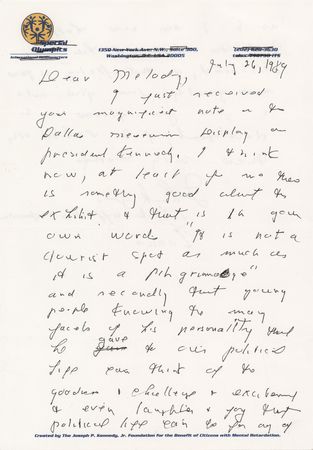 Special
Olympics
International Headquarters
1350 New York Ave. N.W., Suite 500,
Washington, D.C. USA 20005
July 26, 1989
Dear Melody,
I just received
your magnificent note on the
Dallas museum display on
president Kennedy. I think
now, at least for me there
is something good about the
exhibit & that is in your
own words "It is not a
tourist spot as much as
it is a pilgrimage"
and secondly that young
people knowing the many
facets of his personality that
he gave to our political
life can think of the
goodness & challenge & excitement
& even laughter & joy that
political life can be for any of
Created by The Joseph P. Kennedy, Jr. Foundation for the Benefit of Citizens with Mental Retardation.